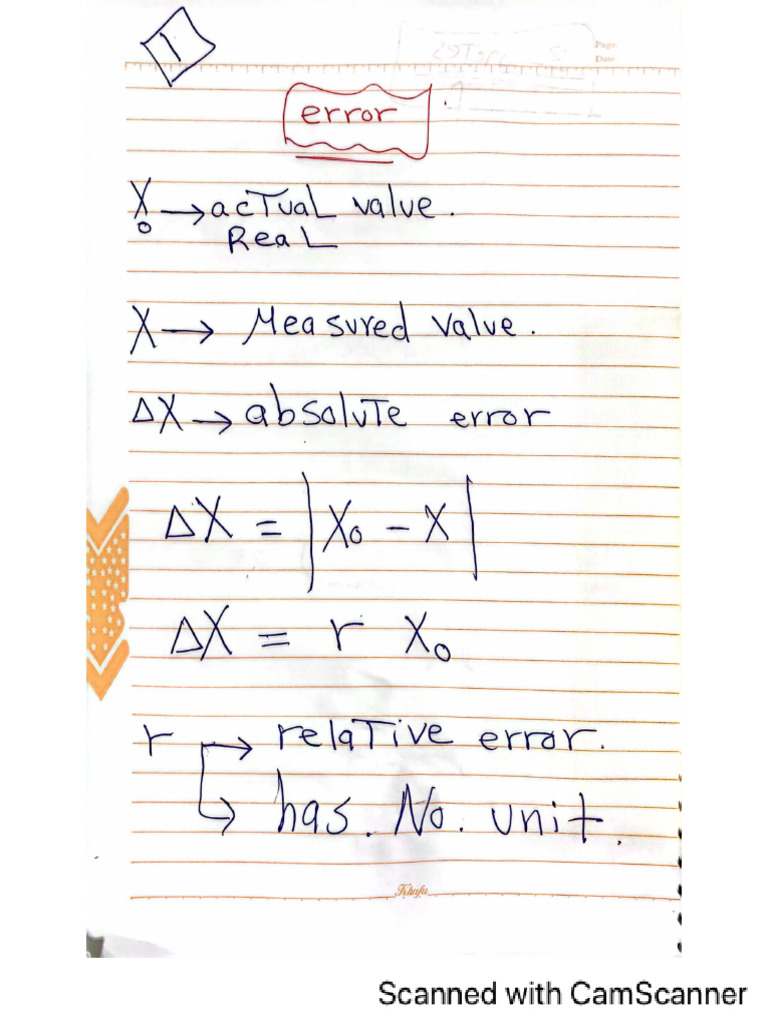 1
Page:
Date:
error
X₀ → acTuaL value.
ReaL
X → Measured value.
ΔX → absoluTe error
ΔX = |X₀ - X|
ΔX = r X₀
r → relaTive error.
↳ has. No. unit.
Khufu
Scanned with CamScanner